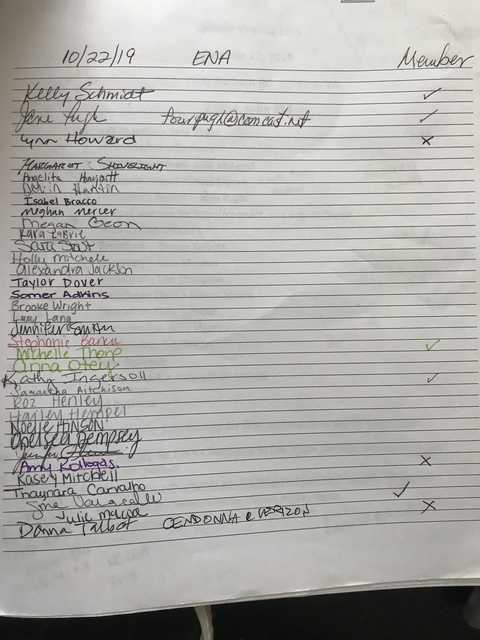 10/22/19 ENA Member
Kelly Schmidt ✓
Jane Pugh fourpugh@comcast.net ✓
Lynn Howard x
MARGARET SHINELIGHT
Angelita
Devin Hardin
Isabel Bracco
Meghan Mercer
Megan Geon
Kara LaBrie
Sara
Holly Mitchell
Alexandra Jackson
Taylor Dover
Somer Adkins
Brooke Wright
Lucy Lang
Jennifer
Stephanie
Michelle Thorp ✓
Anna Otey
Kathy Ingersoll ✓
Samantha Aitchison
Roz Henley
Hailey Hempel
NOELLE HINSON
Chelsea Dempsey
Jennifer
Amy Kollegas x
Kasey Mitchell
Thaynara Carvalho ✓
Julie x
Donna Talbot CENDONNA @ VERIZON